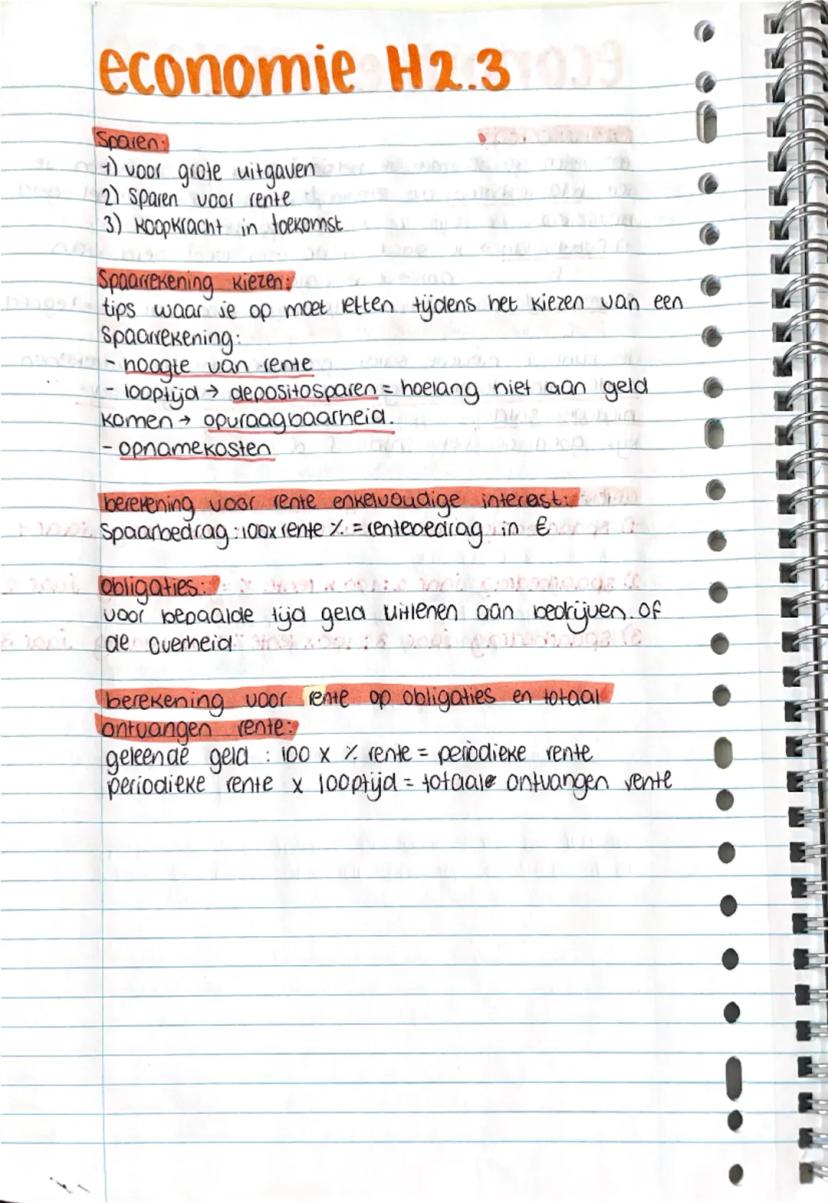 economie H2.3
Sparen:
1) voor grote uitgaven
2) sparen voor rente
3) koopkracht in toekomst
Spaarrekening kiezen:
tips waar je op moet letten tijdens het kiezen van een
spaarrekening:
- hoogte van rente
- looptijd → depositosparen = hoelang niet aan geld
komen → opvraagbaarheid.
- opnamekosten
berekening voor rente enkelvoudige interest:
Spaarbedrag : 100 x rente % = rentebedrag in €
Obligaties:
voor bepaalde tijd geld uitlenen aan bedrijven of
de overheid
berekening voor rente op obligaties en totaal
ontvangen rente:
geleende geld : 100 x % rente = periodieke rente
periodieke rente x looptijd = totaale ontvangen rente